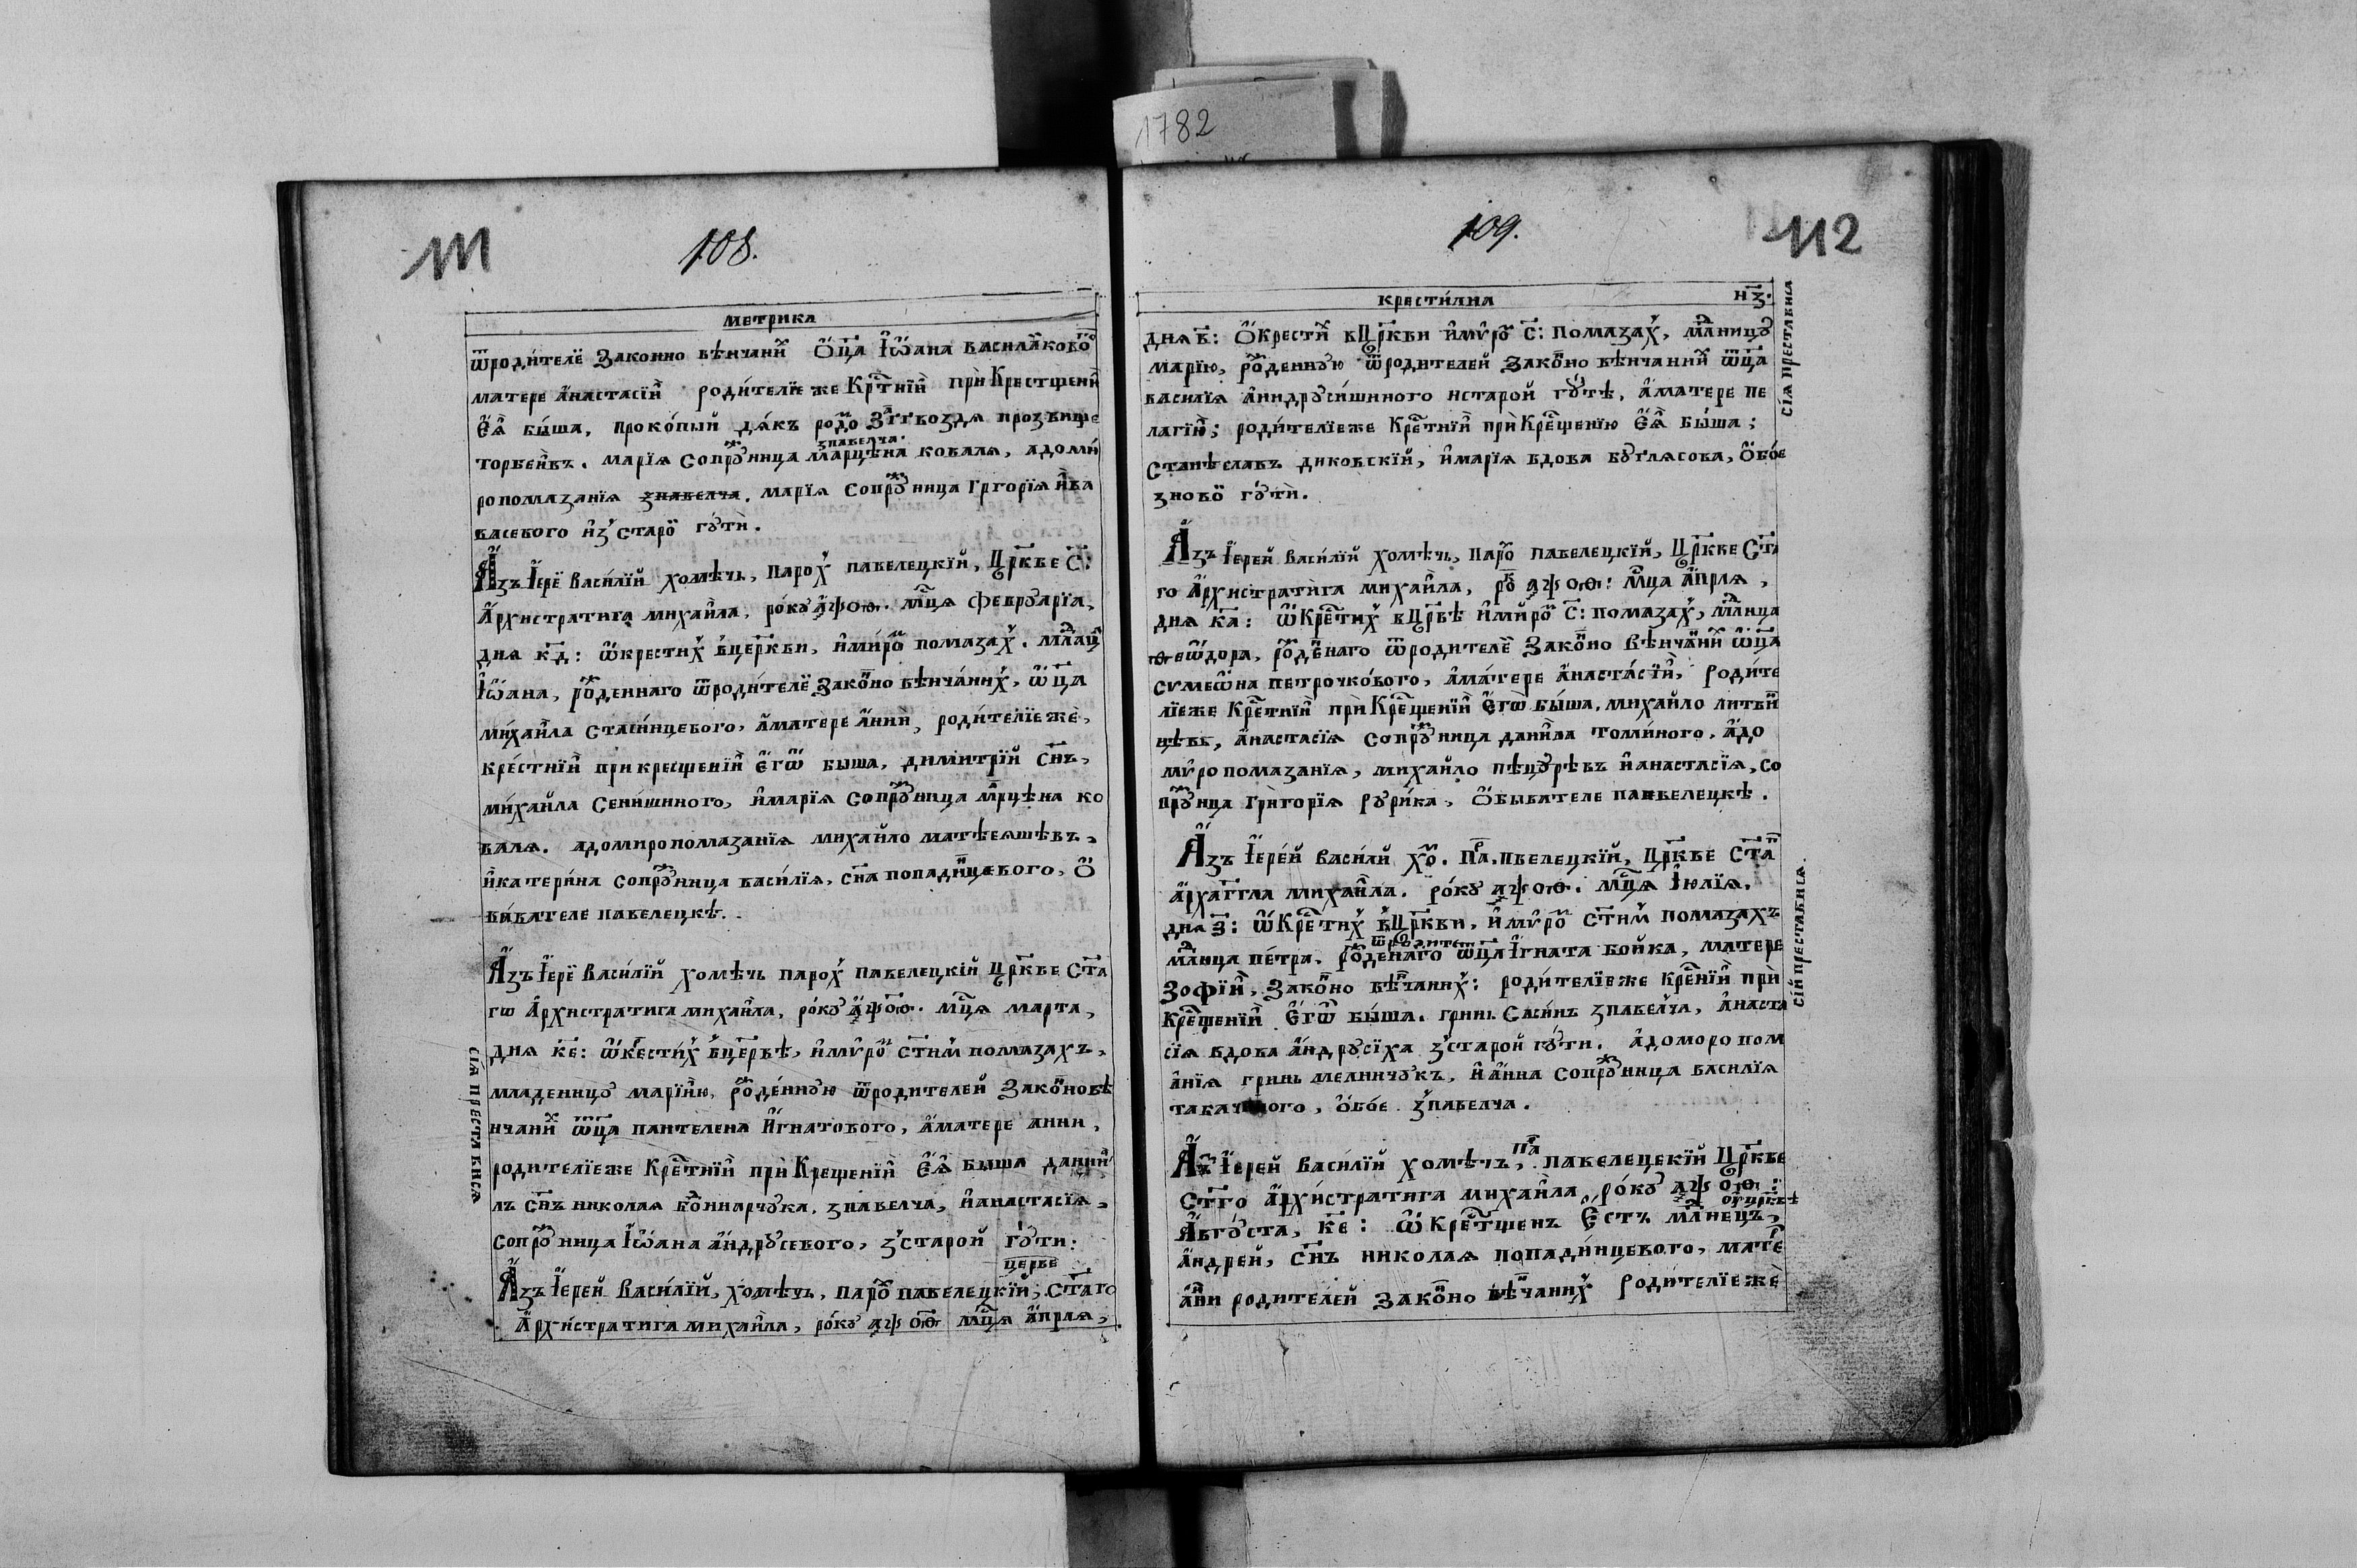 1782
111
108.
метрика
ѿродителё законно вѣнчани̾х ѻ҃ца Іѡана василѧ̾ковог̾о
матере анастасіи родителіе же Кр҃тніи при Крестщени
еѧ быша, прокопый дѧкъ род̾о З҃ гвоздѧ прозвище
знавелча.
торбеивъ. маріѧ сопрꙋ̾жница марцѣна ковалѧ, адоми
ропомазаніѧ знавелча. маріѧ сопрꙋ̾жница григоріѧ ива
васевого из̾ старӧ гꙋти.
Азъ Іерё василій хомѣчь, парох̾ павелецкій, Цр҃кве С҃:
Архистратига михаила, рокꙋ ҂аѱоѳ. м҃цѧ феврꙋаріа,
днѧ к҃д: ѡкрестих̾ вце҃ркви, имѵро̾м помазах̾. мл҃дц
Іѡана, рож̾деннаго ѿродителё законно вѣнчаних̾, ѿ҃ца
михаила стасинцевого, аматере анни, родителіеже,
крестніи прикресщеніи егѡ быша, димитрій с҃нъ,
михайла сенишиного, имаріѧ сопрꙋ̾жница м҃рцѣна ко
валѧ. адомиропомазаніѧ михайло матѣеѧшѣвъ,
икатерина сопрꙋ̾жница василіѧ, с҃на попадинцевого, ѻ
бивателе павелецкѣ.
Азъ Іерё василій хомѣчь парох̾ павелецкій Цр҃кве Ст҃а
гѡ Архистратига михаила, рокꙋ ҂аѱоѳ. м҃цѧ марта,
днѧ к҃е: ѡкрестих̾ вце҃рвѣ, имѵро̾м ст҃им̾ помазахъ,
младеницꙋ маріию, рож̾деннꙋю ѿродителей законовѣ
нчани̾х ѿ҃ца пантелена игнатового, аматере анни,
родителіеже Кр҃тніи при Крещеніи еѧ быша даний
лъ с҃нъ николаѧ боннарчꙋка, знавелча, ианастасіѧ,
сопрꙋ̾жница Іѡана андрꙋсевого, з̾старой гꙋти:
церве
Азъ Іерей василій, хомѣчь, паро̾х павелецкій, ст҃аго
Архистратига михаила, рокꙋ ҂аѱоѳ м҃цѧ априлѧ,
сіѧ престависѧ
109.
112
крестилна
н҃з.
днѧ в҃: ѻкрести̾х вЦр҃кви имѵро̾м С҃: помазах̾, мл҃дницꙋ
марію, рож̾деннꙋю ѿродителей законно вѣнчанни̾х ѿ҃ца
василіѧ аиндрꙋсишиного истарой гꙋтѣ, аматере пе
лагіи; родителіеже Кре҃тніи при Кре҃щенію еѧ быша;
станѣславъ диковскій, имаріѧ вдова вꙋглѧсова, ѻбое
зновӧ гꙋти.
Азъ Іерей василій хомѣчь, паро̾х павелецкій, Цр҃кве Ст҃а
го Архистратига михаила, ро̾к ҂аѱоѳ: м҃ца априлѧ,
днѧ к҃а: ѡКре҃тих̾ вЦр҃вѣ имѵро̾м С҃: помазах̾, мл҃дница
ѳеѡдора, рож̾деннаго ѿродителе̾й законно вѣнчани̾х ѿ҃ца
сѵмеѡна петрочкового, аматере анастасіи, родите
ліеже Кре҃тніи при Кре҃щеніи егѡ быша, михайло литви
цѣвъ, анастасіѧ сопрꙋ̾жница данила томиного, адо
мѵропомазаніѧ, михайло пѣцꙋрѣвъ ианастасіѧ, со
прꙋ̾ница григоріѧ рꙋрика, ѻбывателе панвелецкѣ.
Азъ Іерей василі хо̾м. п҃а. пвелецкій, Цр҃кве ст҃а̾г
арха҃ггла михаила. рокꙋ ҂аѱоѳ. м҃цѧ Іюліѧ.
днѧ з҃: ѡКре҃тих̾ вЦр҃кви, имѵро̾м ст҃им̾ помазахъ
ѿродите
мл҃дница петра, рож̾денаго ѿ҃ца Ігната бойка, матере
Зофіи, законно вѣнчаних̾: родителіеже Кре҃ніи при
Кре҃щеніи егѡ быша. гринь Сасинъ знавелча, анаста
сіѧ вдова андрꙋсіха з̾старой гꙋти. адоморопом
аніѧ гринь мелничꙋкъ, ианна сопрꙋ̾жница василіѧ
ткаченого, ѻбое з̾павелча.
па
Азъ Іерей василій хомѣчъ, павелецекій Цр҃кве
ст҃го архистратига михаила рокꙋ ҂аѱоѳ:
Авгꙋста, к҃е: ѡКре҃тщенъ естъ мл҃днецъ,
андрей, с҃нъ николаѧ попадинцевого, мате҃
анни родителей законно вѣнчаних̾ родителіеже
сіѧ престависа
сій преставися.